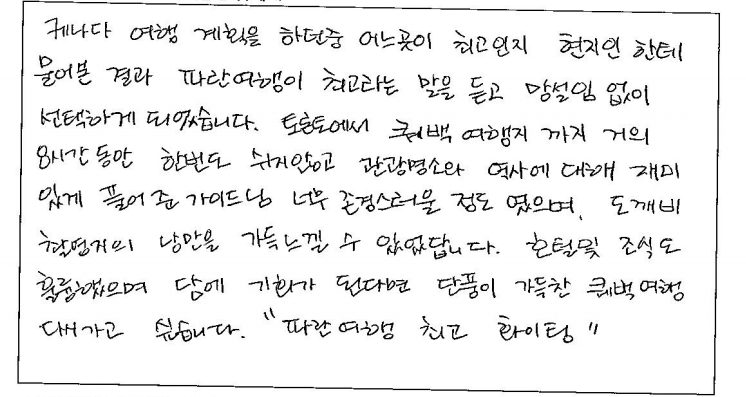 케나다 여행 계획을 하던중 어느곳이 최고인지 현지인 한테
물어본 결과 파란여행이 최고라는 말을 듣고 망설임 없이
선택하게 되었습니다. 토론토에서 퀘백 여행지 까지 거의
8시간동안 한번도 쉬지않고 관광명소와 역사에 대해 재미
있게 풀어 준 가이드님 너무 존경스러울 정도 였으며, 도깨비
촬영지의 낭만을 가득느낄 수 있었답니다. 호텔및 조식도
훌륭했으며 담에 기회가 된다면 단풍이 가득찬 퀘백여행
다시가고 싶습니다. "파란여행 최고 화이팅"